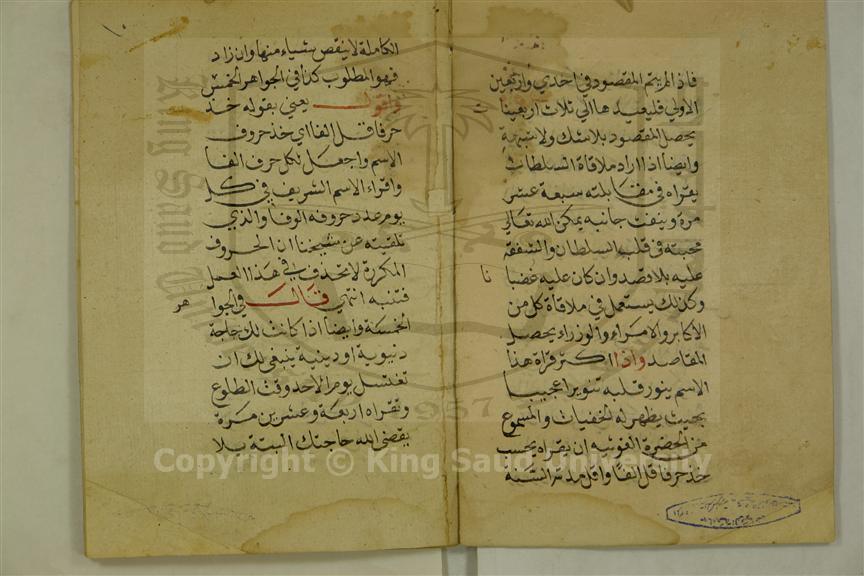 فاذا لم يتم المقصود في احدي واربعين
الاولي فليعيدها الي ثلاث اربعينات
يحصل المقصود بلا شك ولا شبهة
وايضا اذا اراد ملاقاة السلطان
يقراه في مقابلته سبعة عشر
مرة وينفث جانبه يمكن الله تعالي
محبته في قلب السلطان والشفقة
عليه بلا وقصد وان كان عليه غضبا
نا
وكذلك يستعمل في ملاقاة كل من
الاكابر والامراء والوزراء يحصل
المقاصد واذا اكثر قراة هذا
الاسم ينور قلبه تنويرا عجيبا
بحيث يظهر له الخفيات والمسموع
من الحضرة الغوثيه ان يقراه بحسب
خذ حرفا قل الفا واقل مدته السنة
١٠
الكاملة لا ينقص بشياء منها وان زاد
فهو المطلوب كذا في الجواهر الخمس
واقول يعني بقوله خذ
حرفا قل الفا اي خذ حروف
الاسم واجعل لكل حرف الفا
واقراء الاسم الشريف في كل
يوم عدد حروفه الوفا والذي
تلقيته عن شيخنا ان الحروف
المكررة لا تحذف في هذا العمل
فتنبه انتهي قال في الجوا
هر
الخمسة وايضا اذا كانت لك حاجة
دنيوية او دينية ينبغي لك ان
تغتسل يوم الاحد وقت الطلوع
وتقراه اربعة وعشرين مرة
يقضي الله حاجتك البتة بلا
Copyright © King Saud University
King Saud U
1957